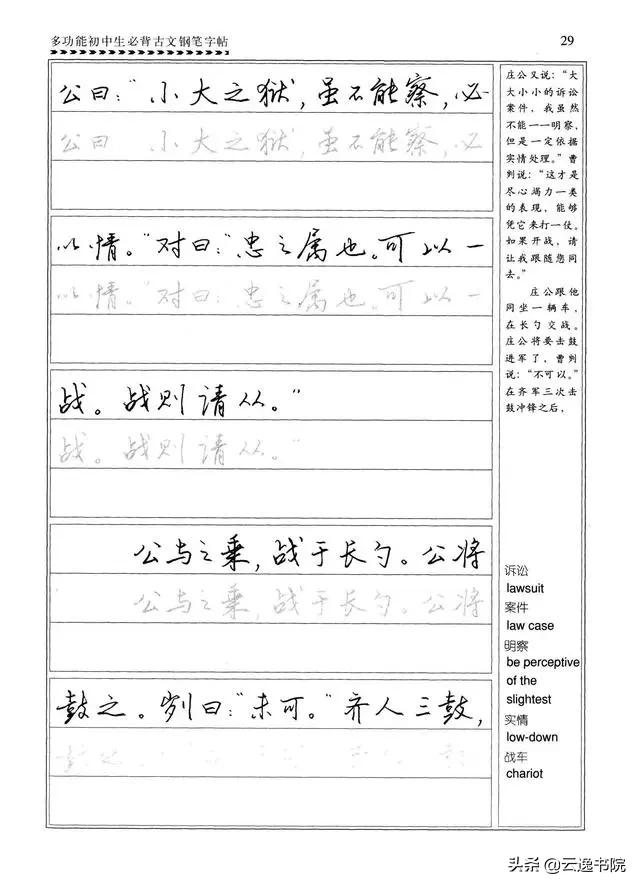 多功能初中生必背古文钢笔字帖
29
公曰：“小大之狱，虽不能察，必
公曰 小大之狱，虽不能察，必
以情。”对曰：“忠之属也。可以一
以情。”对曰：“忠之属也。可以一
战。战则请从。”
战。战则请从。”
公与之乘，战于长勺。公将
公与之乘，战于长勺。公将
鼓之。刿曰：“未可。”齐人三鼓，
庄公又说：“大
大小小的诉讼
案件，我虽然
不能一一明察，
但是一定依据
实情处理。”曹
刿说：“这才是
尽心竭力一类
的表现，能够
凭它来打一仗。
如果开战，请
让我跟随您同
去。”
庄公跟他
同坐一辆车，
在长勺交战。
庄公将要击鼓
进军了，曹刿
说：“不可以。”
在齐军三次击
鼓冲锋之后，
诉讼
lawsuit
案件
law case
明察
be perceptive
of the
slightest
实情
low-down
战车
chariot
头条@云逸书院